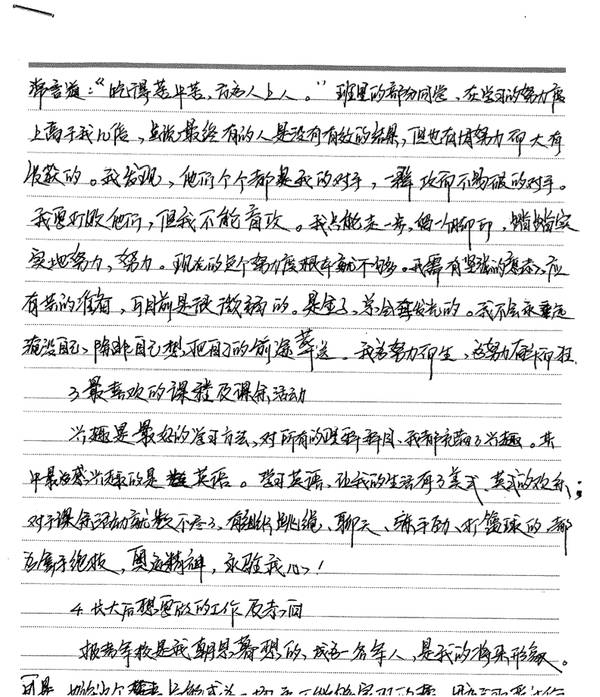 常言道：“吃得苦中苦，方为人上人。”班里的部分同学，在学习的努力度
上高于我几倍，虽说最终有的人是没有有效的结果，但也有因努力而大有
收获的。我发现，他们个个都是我的对手，一群攻而不易破的对手。
我要打败他们，但我不能盲攻。我只能走一步，脚印，踏踏实
实地努力，努力。现在的这个努力度根本就不够。我需有坚强的意志，应
有苦的准备，可目前是很微弱的。是金子，总会发光的。我不会永远
淹没自己，除非自己想把自己的前途葬送。我为努力而生，为努力而狂
3.最喜欢的课程及课余活动
兴趣是最好的学习方法，对所有的理科科目，我都充满了兴趣。其
中最感兴趣的是英语。学习英语，让我的生活有了美式、英式的欢乐；
对于课余活动就数不尽了，跳绳、聊天、打篮球的，都
为属于绝技，奥运精神，永驻我心！
4.长大后想要做的工作及志向
报考军校是我朝思暮想的，成为一名军人，是我的将来形象。
可是